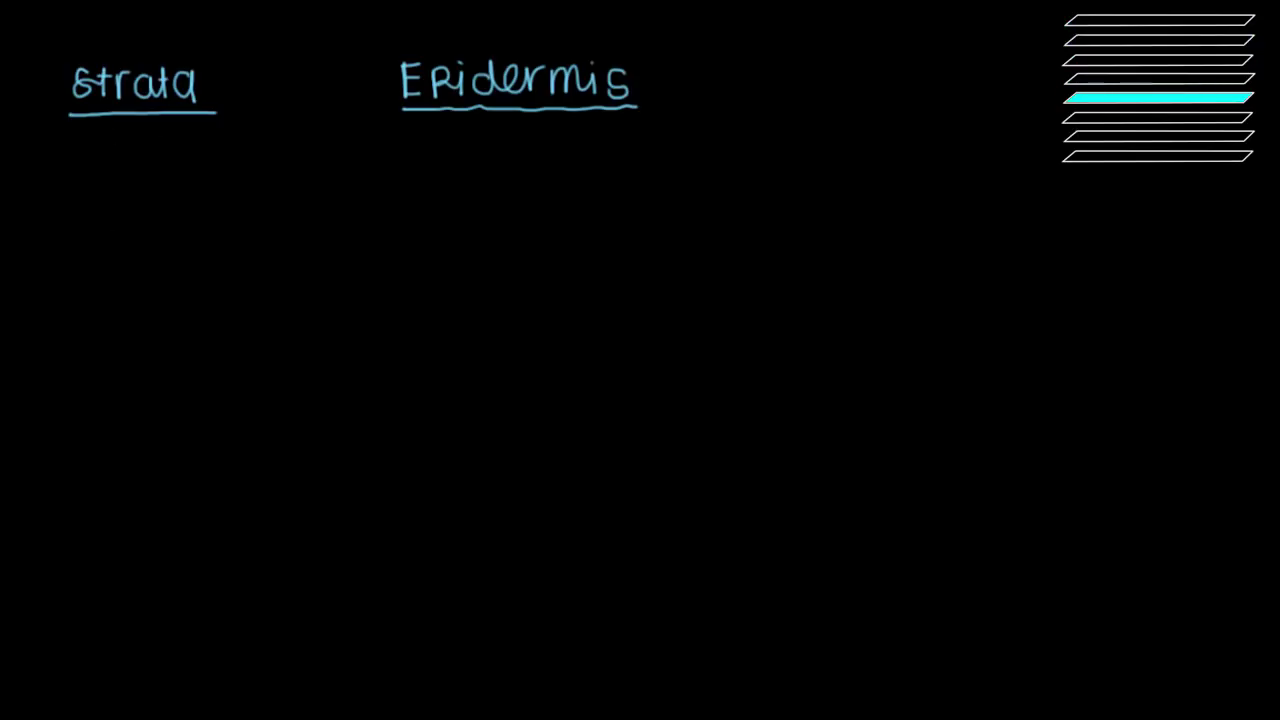 strata Epidermis